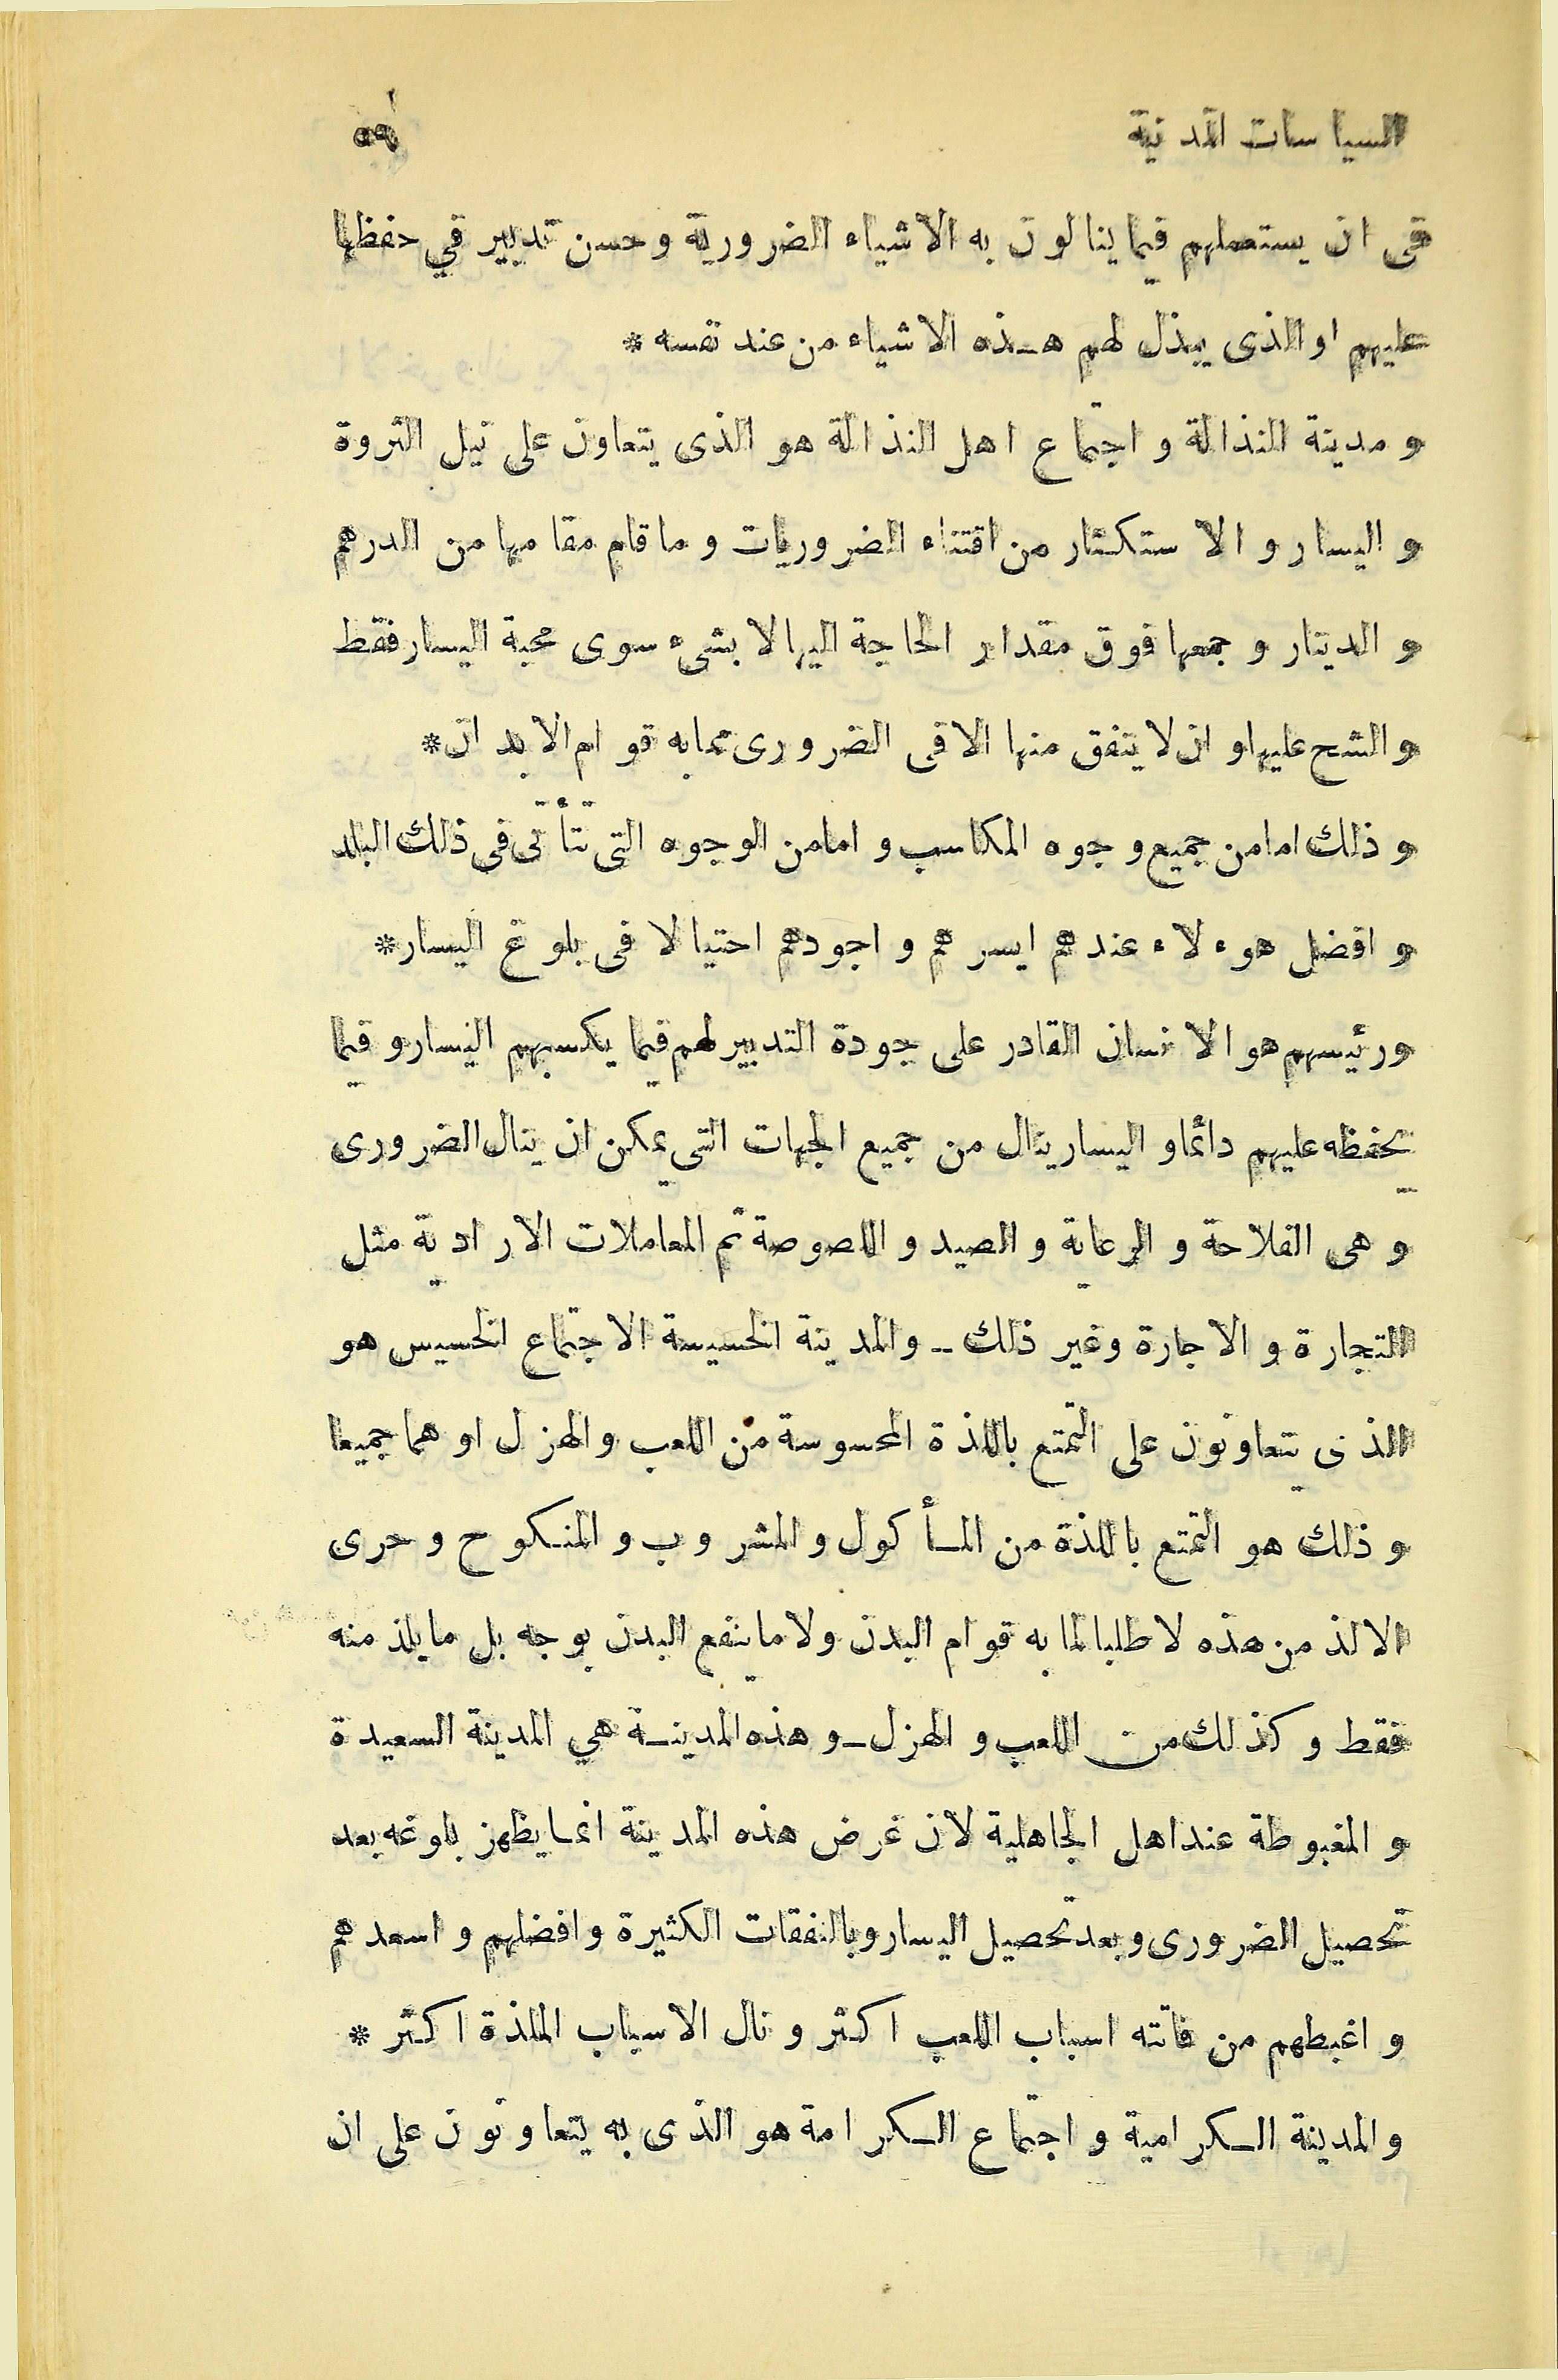 السياسات المدنية ٥٩
في ان يستعملهم فيما ينالون به الاشياء الضرورية وحسن تدبير في حفظها
عليهم او الذى يبذل لهم هذه الاشياء من عند نفسه *
و مدينة النذالة و اجتماع اهل النذالة هو الذى يتعاون على نيل الثروة
و اليسار و الاستكثار من اقتناء الضروريات و ما قام مقامها من الدرهم
و الدينار و جمعها فوق مقدار الحاجة اليها لا بشىء سوى محبة اليسار فقط
و الشح عليها و ان لا ينفق منها الا فى الضرورى مما به قوام الابدان *
و ذلك اما من جميع وجوه المكاسب و اما من الوجوه التى تتأتى فى ذلك البلد
و افضل هوءلاء عندهم ايسرهم و اجودهم احتيالا فى بلوغ اليسار *
ورئيسهم هو الانسان القادر على جودة التدبير لهم فيما يكسبهم اليسار و فيما
يحفظه عليهم دائما و اليسار ينال من جميع الجهات التى يمكن ان ينال الضرورى
و هى الفلاحة و الرعاية و الصيد و اللصوصة ثم المعاملات الارادية مثل
التجارة و الاجارة وغير ذلك ــ والمدينة الخسيسة الاجتماع الخسيس هو
الذى يتعاونون على التمتع باللذة المحسوسة من اللعب والهزل او هما جميعا
و ذلك هو التمتع باللذة من المأكول و المشروب و المنكوح و حرى
الالذ من هذه لا طلبا لما به قوام البدن ولا ما ينفع البدن بوجه بل ما يلذ منه
فقط و كذلك من اللعب و الهزل ــ و هذه المدينة هي المدينة السعيدة
و المغبوطة عند اهل الجاهلية لان غرض هذه المدينة انما يظهز بلوغه بعد
تحصيل الضرورى و بعد تحصيل اليسار وبالنفقات الكثيرة وافضلهم و اسعدهم
و اغبطهم من فاتته اسباب اللعب اكثر و نال الاسباب الملذة اكثر *
والمدينة الكرامية و اجتماع الكرامة هو الذى به يتعاونون على ان